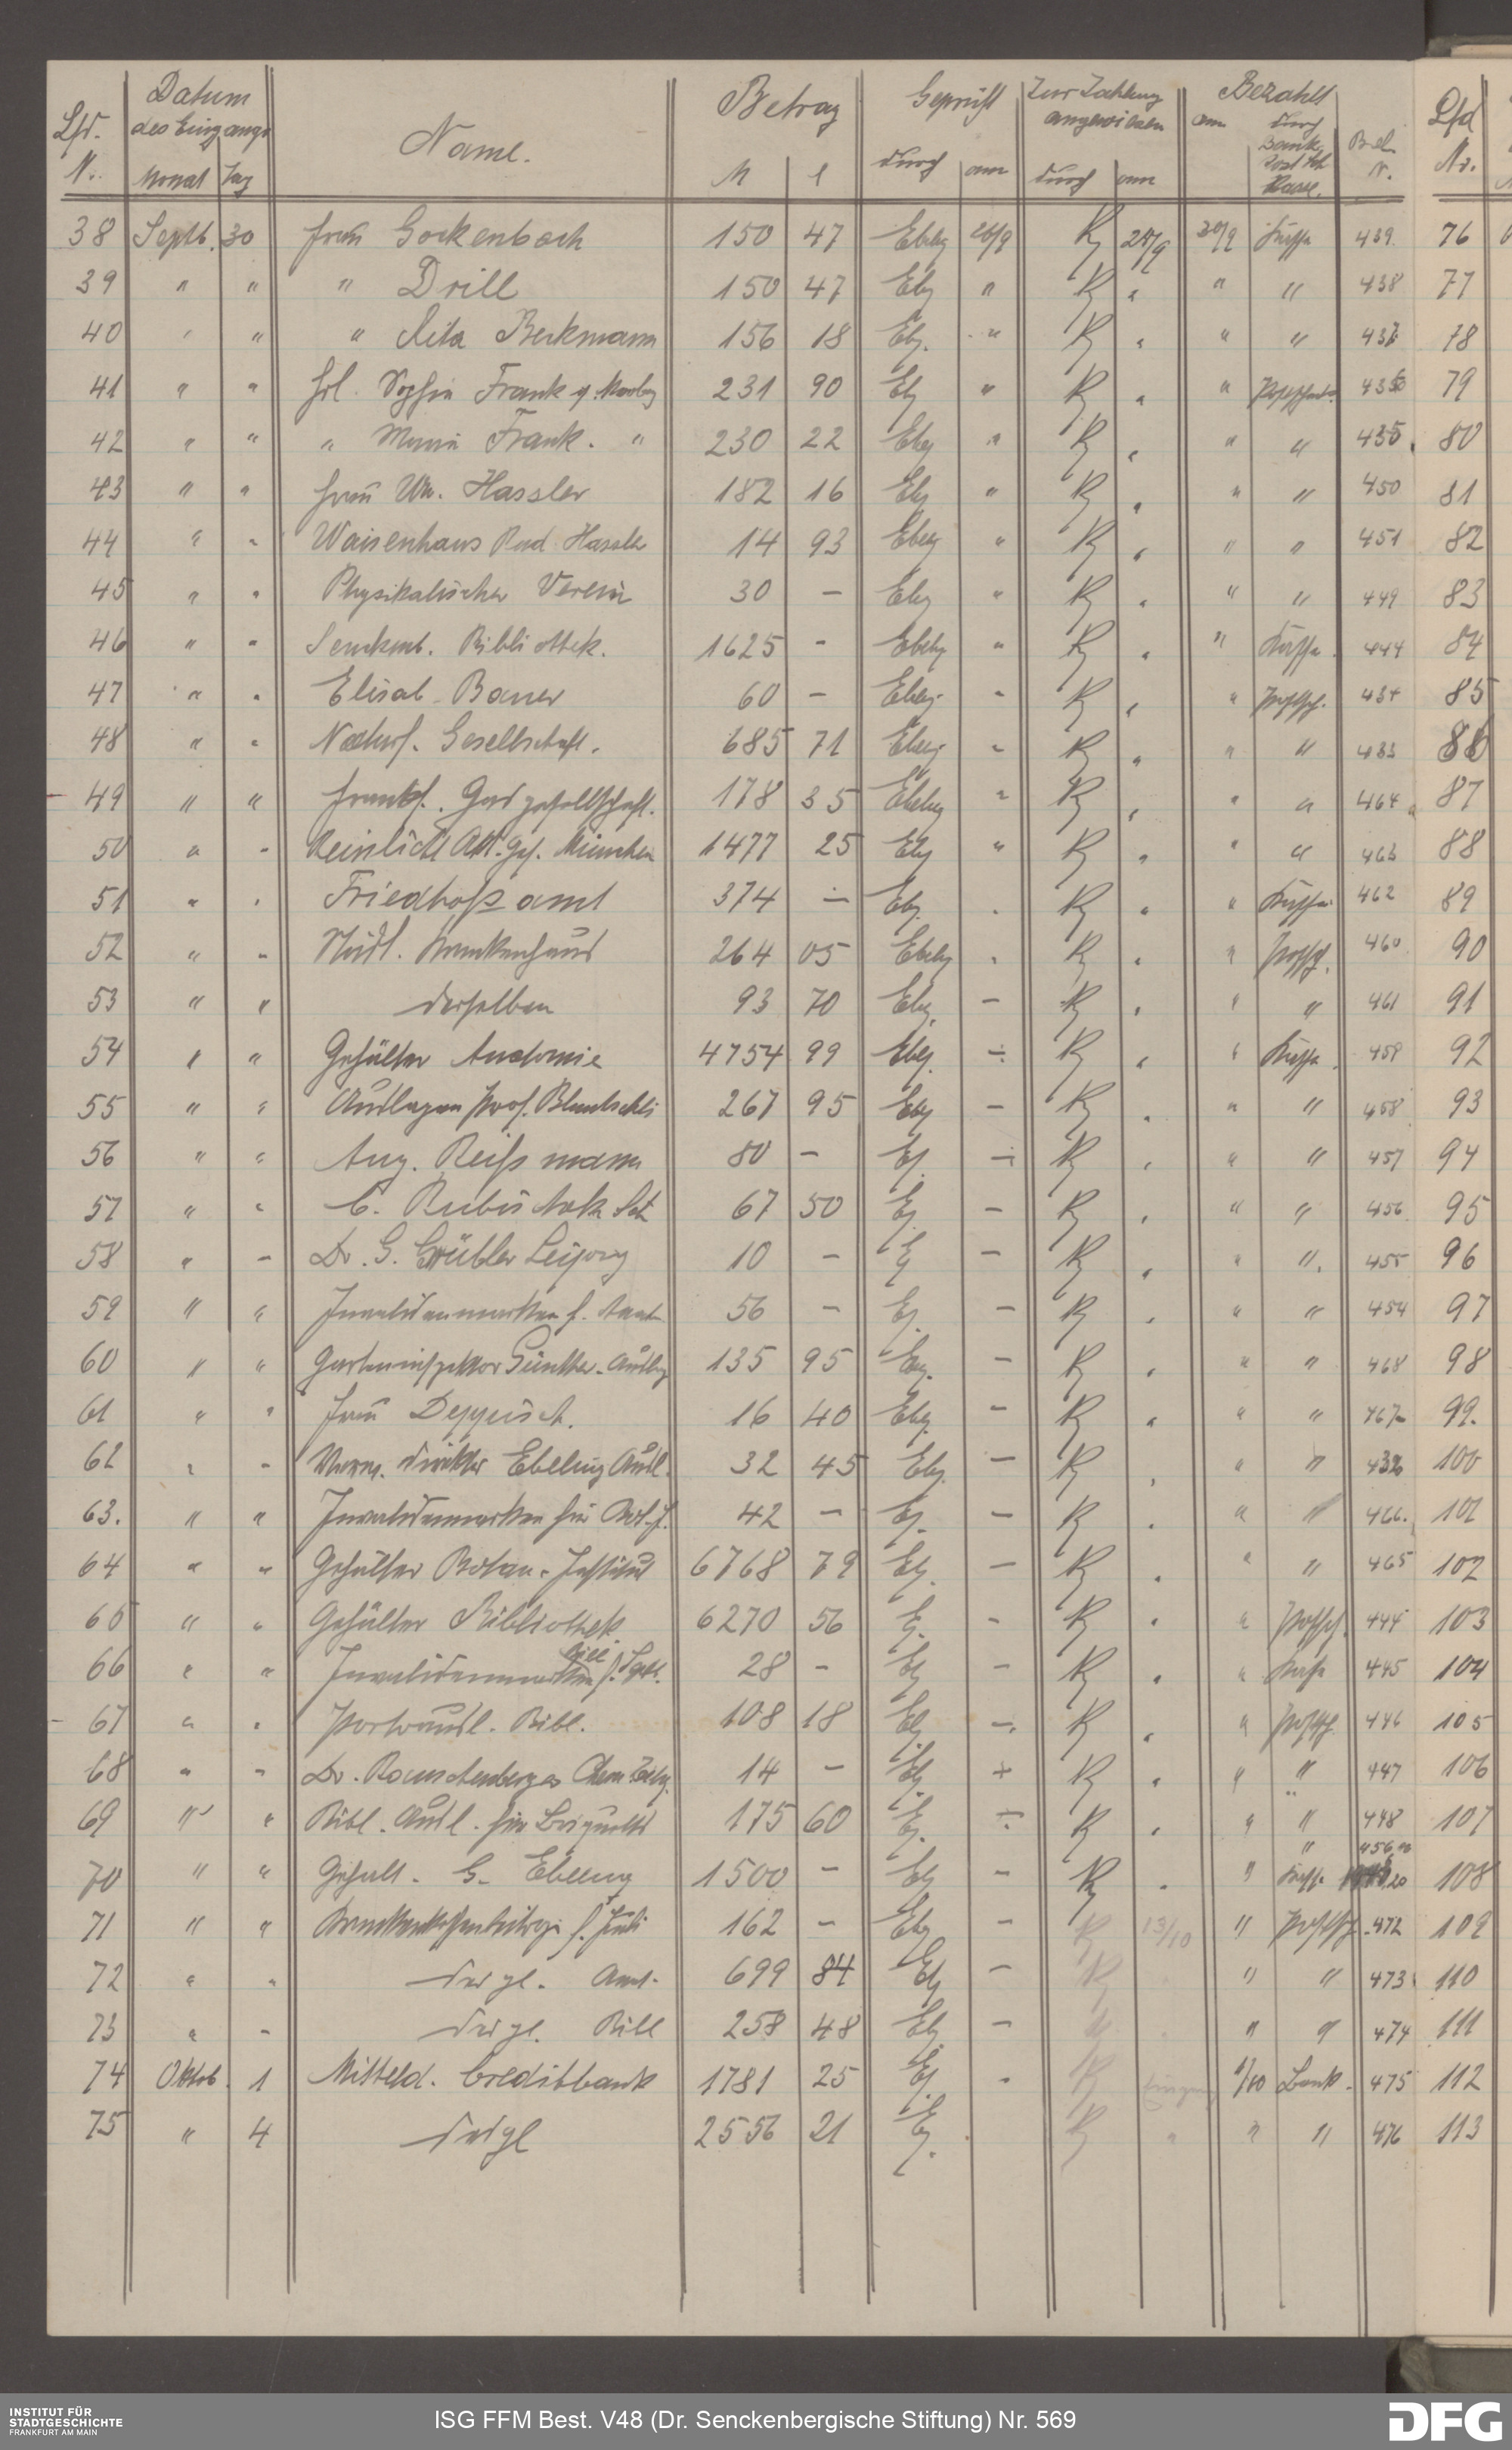 Lfd. N. Datum des Eingangs Monat Tag Name. Betrag M Geprüft durch am Zur Zahlung angewiesen durch am Bezahlt am durch Bank Kasse. Bel. N. Lfd Nr.
38 Septb. 30 Frau Gockenbach 150 47 Ebelg 26/9 27/9 30/9 Kasse 439. 76
39 " " " Drill 150 47 Ebg " " " " 438 77
40 " " " Rita Beckmann 156 18 Ebg. " " " " 437 78
41 " " Frl. Sophie Frank 231 90 Eb " " " 79
42 " " " Maria Frank. " 230 22 Ebg " " " " 435 80
43 " " Frau Wn. Hassler 182 16 Ebg " " " " 450 81
44 " " Waisenhaus Rud. Hassler 14 93 Ebelg " " " " 451 82
45 " " Physikalischer Verein 30 – Ebg " " " " 449 83
46 " " Senckenb. Bibliothek. 1625 – Ebelg " " " Kasse 444 84
47 " " Elisab. Bauer 60 – Ebelg. " " " Postsch. 434 85
48 " " Naturf. Gesellschaft. 685 71 Ebelg " " " " 433 86
49 " " Frankf. Gasgesellschaft. 178 35 Ebelg " " " " 464 87
50 " " Akt. Ges. München 1477 25 Ebg " " " " 463 88
51 " " Friedhofsamt 374 – Ebg. " " " Kasse 462 89
52 " " Städt. Krankenhaus 264 05 Ebelg " " " Postsch. 460 90
53 " " derselben 93 70 Ebg. – " " " 461 91
54 " " Gehälter Anatomie 4754 99 Ebg. – " " Kasse 459 92
55 " " Auslagen Prof. Bluntschli 267 95 Ebg – " " " 458 93
56 " " Aug. Reiss mann 80 – Ef. – " " " 457 94
57 " " C. 67 50 Ej. – " " " 456 95
58 " " Dr. G. Grübler Leipzig 10 – Ej – " " " 455 96
59 " " Invalidenmarken f. 56 – Ej. – " " " 454 97
60 " " Garteninspektor Günther. Auslag 135 95 Ebg. – " " " 468 98
61 " " Frau Deppisch. 16 40 Ebg. – " " " 467 99.
62 " " direktor Ebeling Ausl. 32 45 Ebg. – " " " 432 100
63. " " Invalidenmarken für Bot. J. 42 – Ej. – " " " 466. 101
64 " " Gehälter Botan. Institut 6768 79 Ej. – " " " 465 102
65 " " Gehälter Bibliothek. 6270 56 E. – " " Postsch. 444 103
66 " " Invalidenmarken f. Septb. Bibl 28 – Ej – " " Kasse 445 104
67 " " Portoausl. Bibl. 108 18 Ej – " " Postsch. 446 105
68 " " Dr. Rauschenberges 14 – Ej. " " " 447 106
69 " " Bibl. Ausl. für Briquetts 175 60 Ej. " " " 448 107
" 456
70 " " Gehalt. G. Ebeling 1500 – Ej – " " Kasse 108
71 " " Krankenkassenbeiträge f. Juli 162 – Ebg – 13/10 " Postsch. 472 109
72 " " dergl. Aug. 699 84 Ej – " " 473 110
73 " " dergl. Bibl 258 48 Ej. – " " 474 111
74 Oktob. 1 Mitteld. Creditbank 1781 25 Ej. 1/10 Bank. 475 112
75 " 4 dergl 2556 21 Ej. " " " 476 113
INSTITUT FÜR
STADTGESCHICHTE
FRANKFURT AM MAIN
ISG FFM Best. V48 (Dr. Senckenbergische Stiftung) Nr. 569
DFG